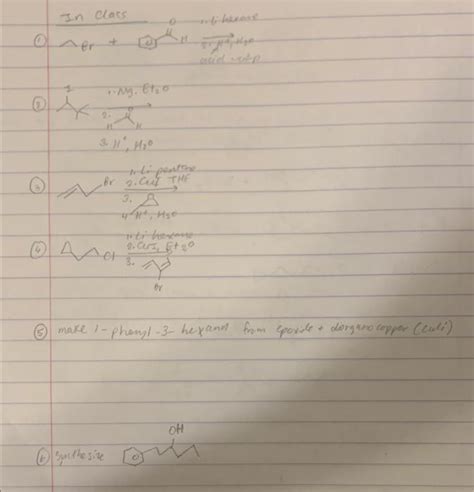 In Class
① Br + O H 1. Li hexane
2. H⁺, H₂O
acid
② I 1. Mg. Et₂O
2. O H H
3. H⁺, H₂O
③ Br 1. Li pentane
2. CuI THF
3. O
4. H⁺, H₂O
④ Cl 1. Li hexane
2. CuI, Et₂O
3.
Br
⑤ make 1-phenyl-3-hexanol from epoxide + diorgano copper (CuLi)
OH
⑥ synthesize